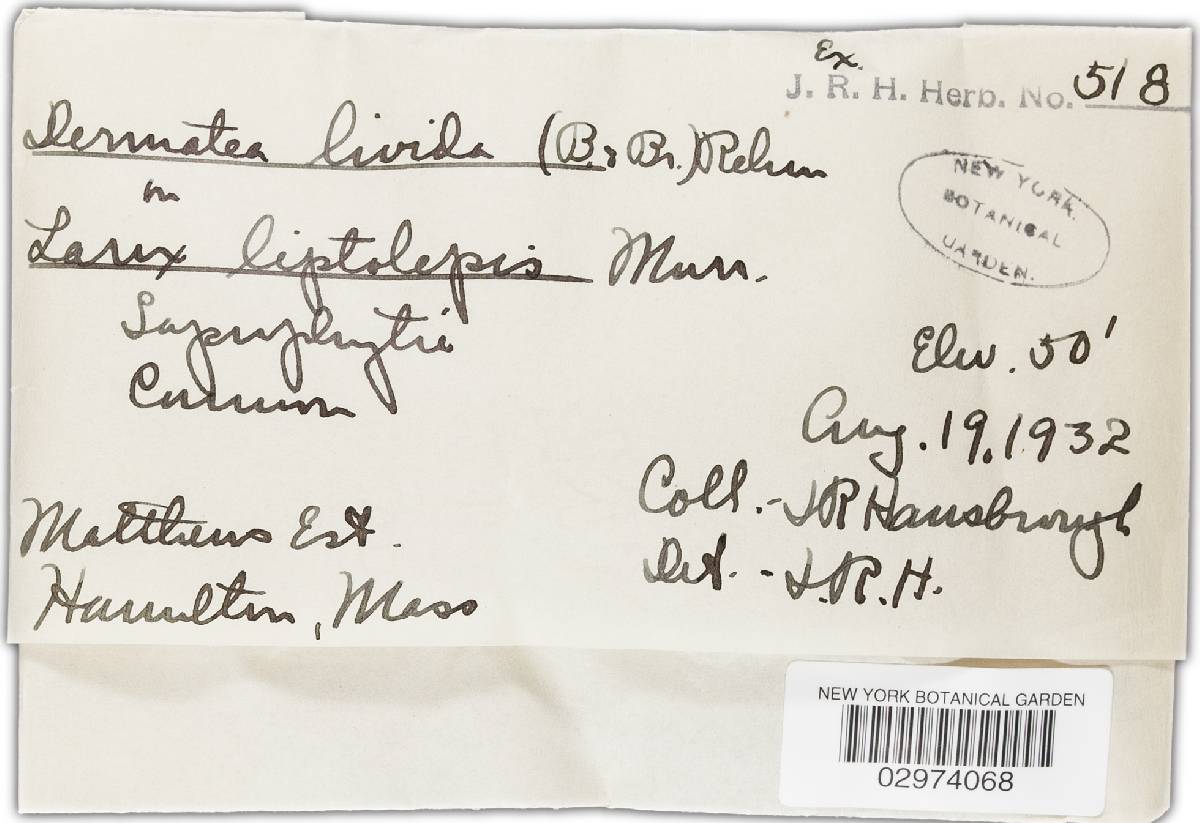 Ex.
J. R. H. Herb. No. 518
Dermatea livida (B. & Br.) Rehm
on
Larix leptolepis Murr.
Saprophytic
Common
NEW YORK
BOTANICAL
GARDEN.
Elev. 50'
Aug. 19, 1932
Coll. - J R Hansbrough
Det. - J. R. H.
Matthews Est.
Hamilton, Mass
NEW YORK BOTANICAL GARDEN
02974068